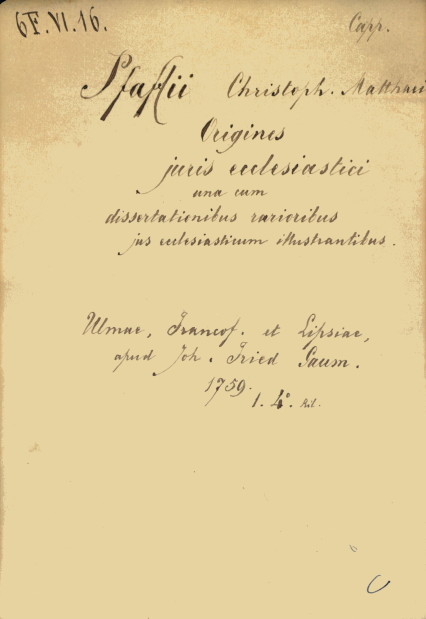 6F.VI.16.
Capp.
Pfaffii Christoph. Matthaei
Origines
juris ecclesiastici
una cum
dissertationibus rarioribus
jus ecclesiasticum illustrantibus.
Ulmae, Francof. et Lipsiae,
apud Joh. Fried Gaum.
1759.
1. 4°.